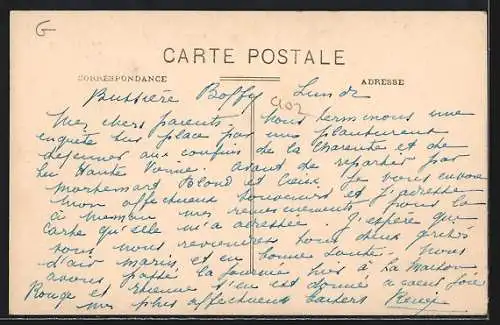 G
CARTE POSTALE
CORRESPONDANCE
ADRESSE
Bussière Boffy Lundi
Mes chers parents. Nous terminons une
enquête sur place par un plantureux
déjeuner aux confins de la Charente et de
la Haute Vienne. Avant de repartir par
Mortemart Blond et Cieux. Je vous envoie
mon affectueux souvenir et j'adresse
à Maman mes remerciements pour la
carte qu'elle m'a adressée. J'espère que
vous nous reviendrez tous deux grisés
d'air marin et en bonne santé. Nous
avons passé la journée hier à La Maison
Rouge et Etienne s'en est donné à coeur joie
mes plus affectueux baisers